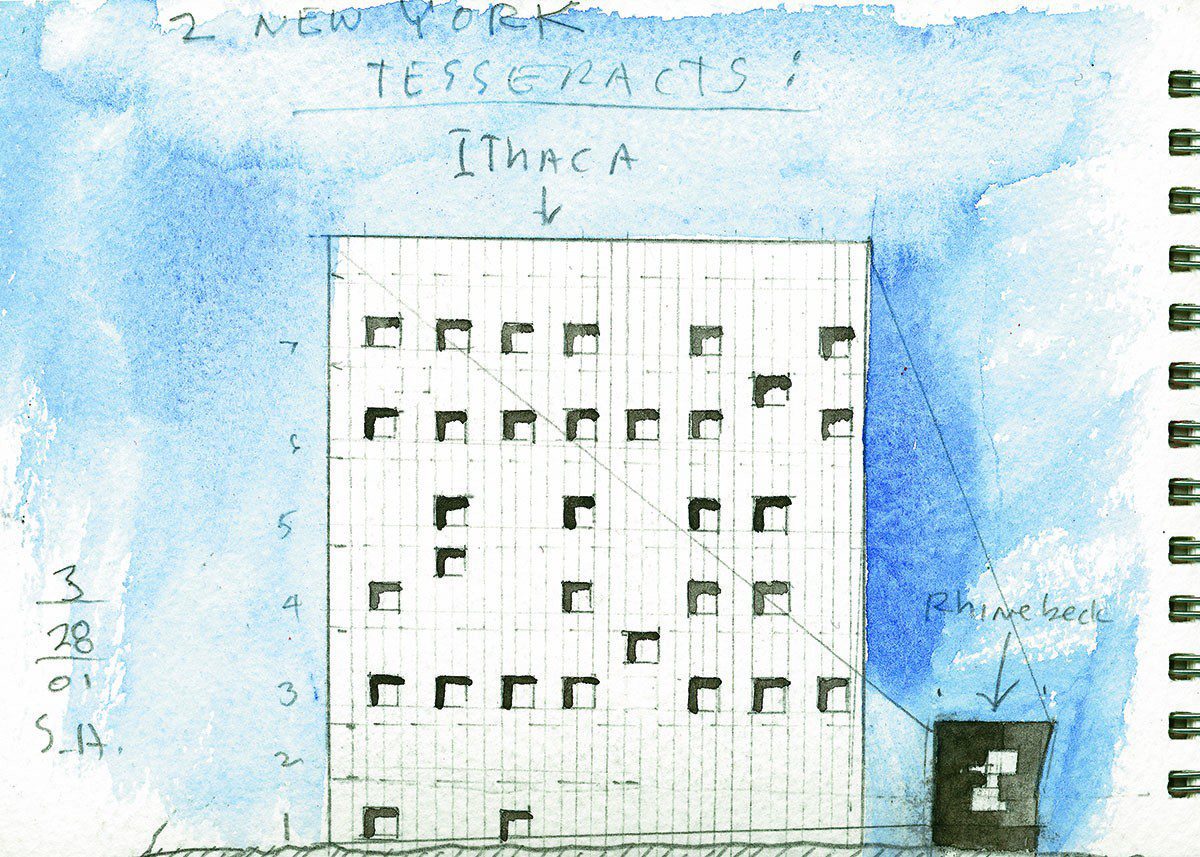 2 NEW YORK
TESSERACTS:
ITHACA
7
6
5
4
3
2
1
3
28
01
S.H.
Rhinebeck